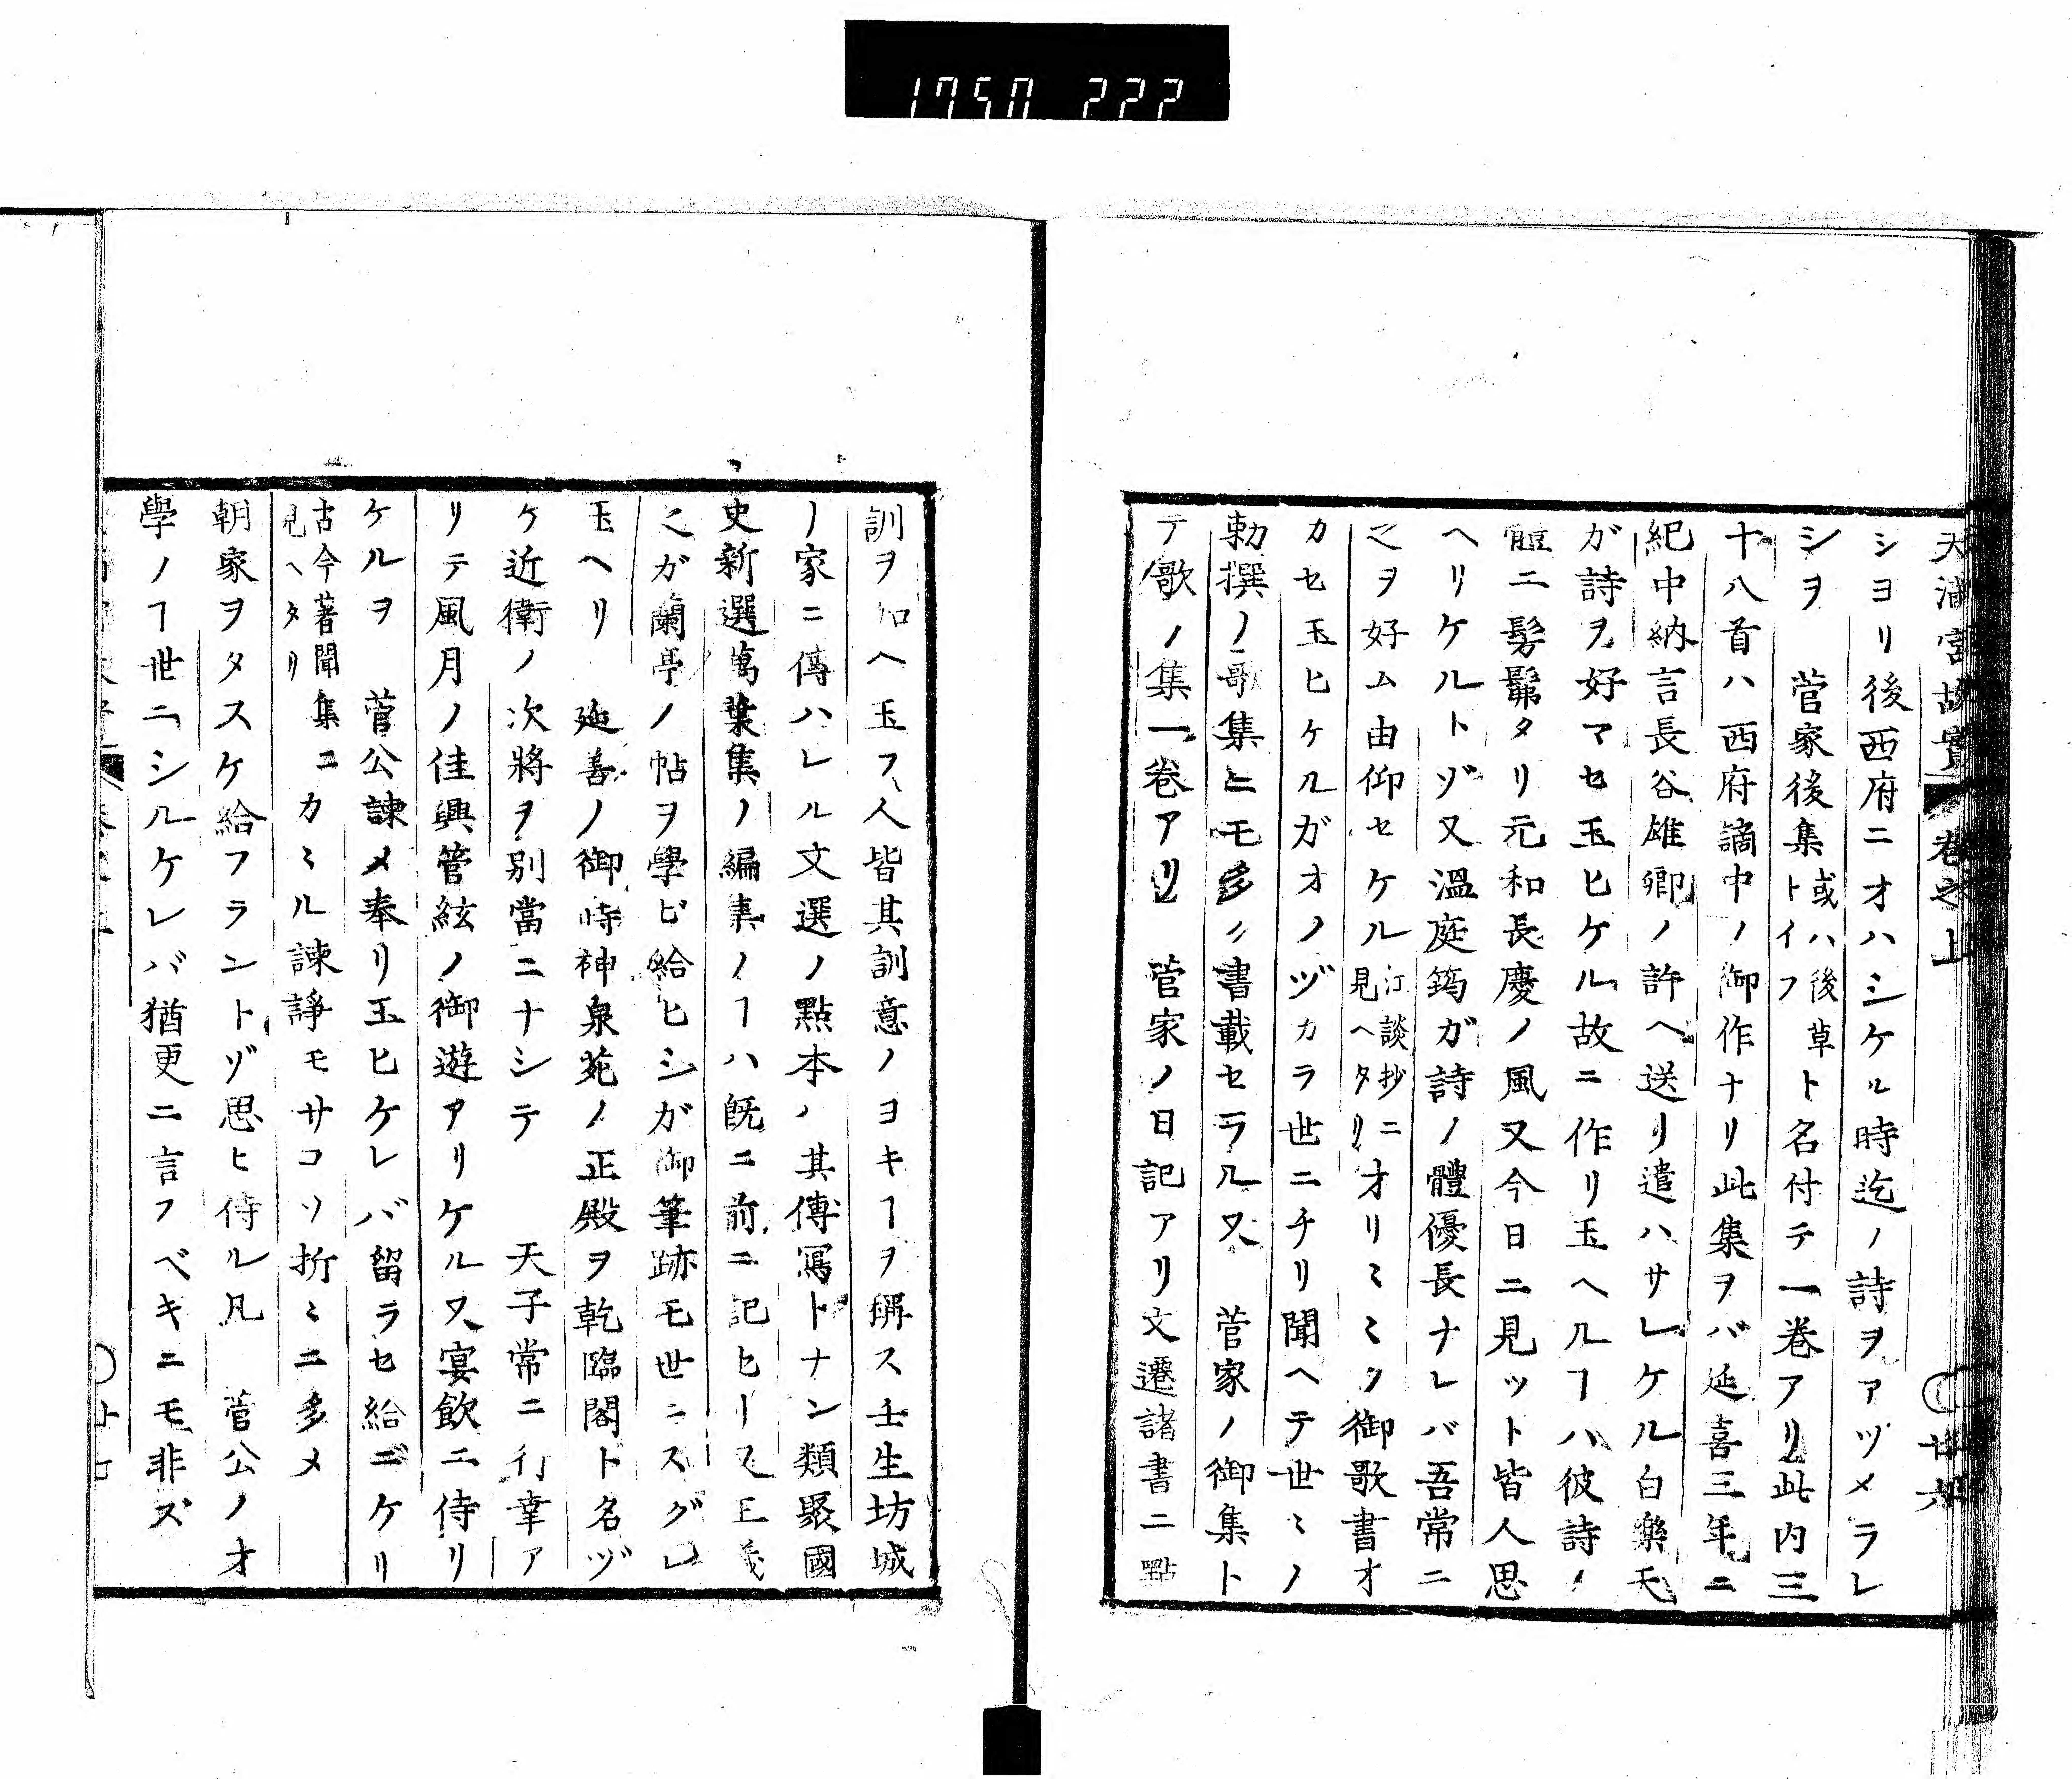 1750 222
天満宮故實 巻之上 廿六
シヨリ後西府ニオハシケル時迄ノ詩ヲアヅメラレ
シヲ　菅家後集トイフ或ハ後草ト名付テ一巻アリ此内三
十八首ハ西府謫中ノ御作ナリ此集ヲバ延喜三年ニ
紀中納言長谷雄卿ノ許ヘ送リ遣ハサレケル白樂天
が詩ヲ好マセ玉ヒケル故ニ作リ玉ヘルヿハ彼詩ノ
體ニ髣髴タリ元和長慶ノ風又今日ニ見ツト皆人思
ヘリケルトゾ又溫庭筠ガ詩ノ體優長ナレバ吾常ニ
之ヲ好ム由仰セケル江談抄ニ見ヘタリオリミミク御歌書オ
カセ玉ヒケルガオノヅカラ世ニチリ聞ヘテ世ミノ
勅撰ノ歌集ニモ多ク書載セラル又　菅家ノ御集ト
テ歌ノ集一巻アリ　菅家ノ日記アリ文選諸書ニ點
訓ヲ加ヘ玉フ人皆其訓意ノヨキヿヲ稱ス壬生坊城
ノ家ニ傳ハレル文選ノ點本ハ其傳寫トナン類聚國
史新選萬葉集ノ編集ノヿハ既ニ前ニ記セリ又王羲
之が蘭亭ノ帖ヲ學ビ給ヒシが御筆跡モ世ニスグレ
玉ヘリ　延喜ノ御時神泉苑ノ正殿ヲ乾臨閣ト名ヅ
ケ近衛ノ次將ヲ別當ニナシテ　天子常ニ行幸ア
リテ風月ノ佳興管絃ノ御遊アリケル又宴飲ニ侍リ
ケルヲ　菅公諫メ奉リ玉ヒケレバ留ラセ給ニケリ
古今著聞集ニ見ヘタリカミル諫諍モサコソ折ミニ多メ
朝家ヲタスケ給フラントゾ思ヒ侍ル凡　菅公ノオ
學ノヿ世ニシルケレバ猶更ニ言フベキニモ非ズ